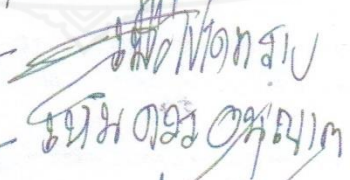 - เพื่อโปรดทราบ
- เห็นควรอนุญาต